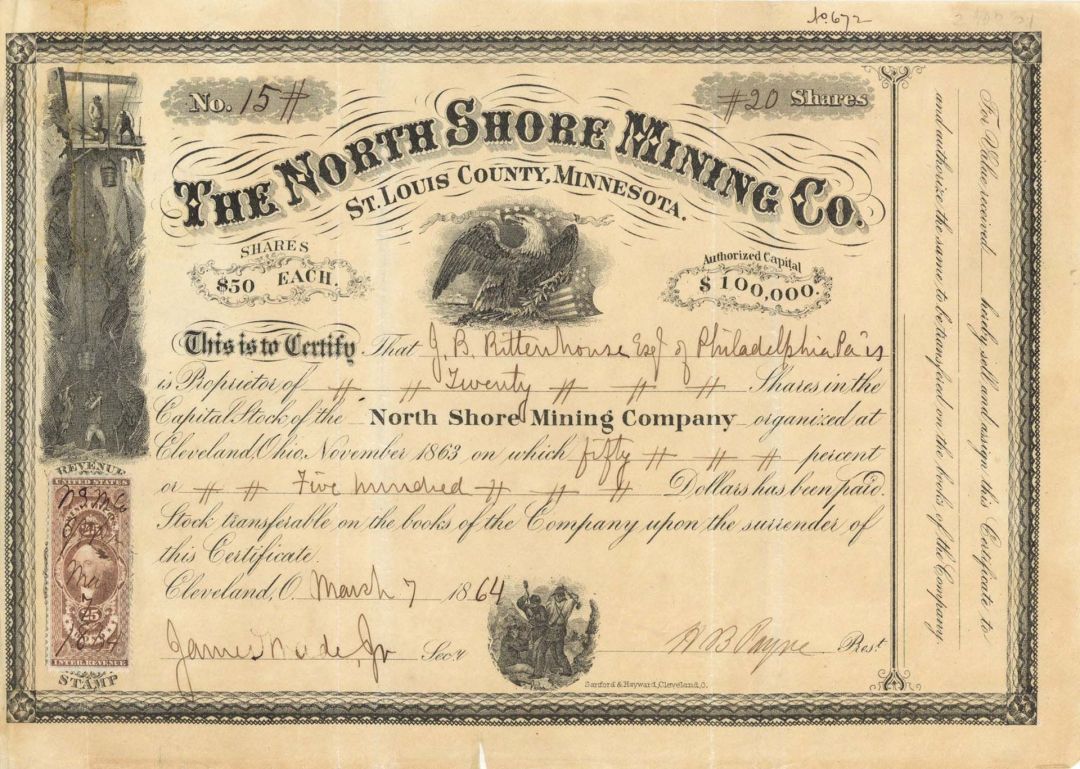 No. 672
No. 15 #
# 20 Shares
THE NORTH SHORE MINING CO.
ST. LOUIS COUNTY, MINNESOTA.
SHARES
$50 EACH.
Authorized Capital
$100,000.
This is to Certify That J. B. Rittenhouse Esqr of Philadelphia Pa is
is Proprietor of # # Twenty # # # Shares in the
Capital Stock of the North Shore Mining Company organized at
Cleveland, Ohio, November 1863 on which fifty # # # percent
or # # Five hundred # # # Dollars has been paid.
Stock transferable on the books of the Company upon the surrender of
this Certificate.
Cleveland, O. March 7 1864
James Wade, Jr Secy
H B Payne Prest
Sanford & Hayward, Cleveland, O.
REVENUE
UNITED STATES
N S M Co
Mar
7
25
1864
INTER. REVENUE
STAMP
For Value received hereby sell and assign this Certificate to
and authorize the same to be transferred on the books of the Company